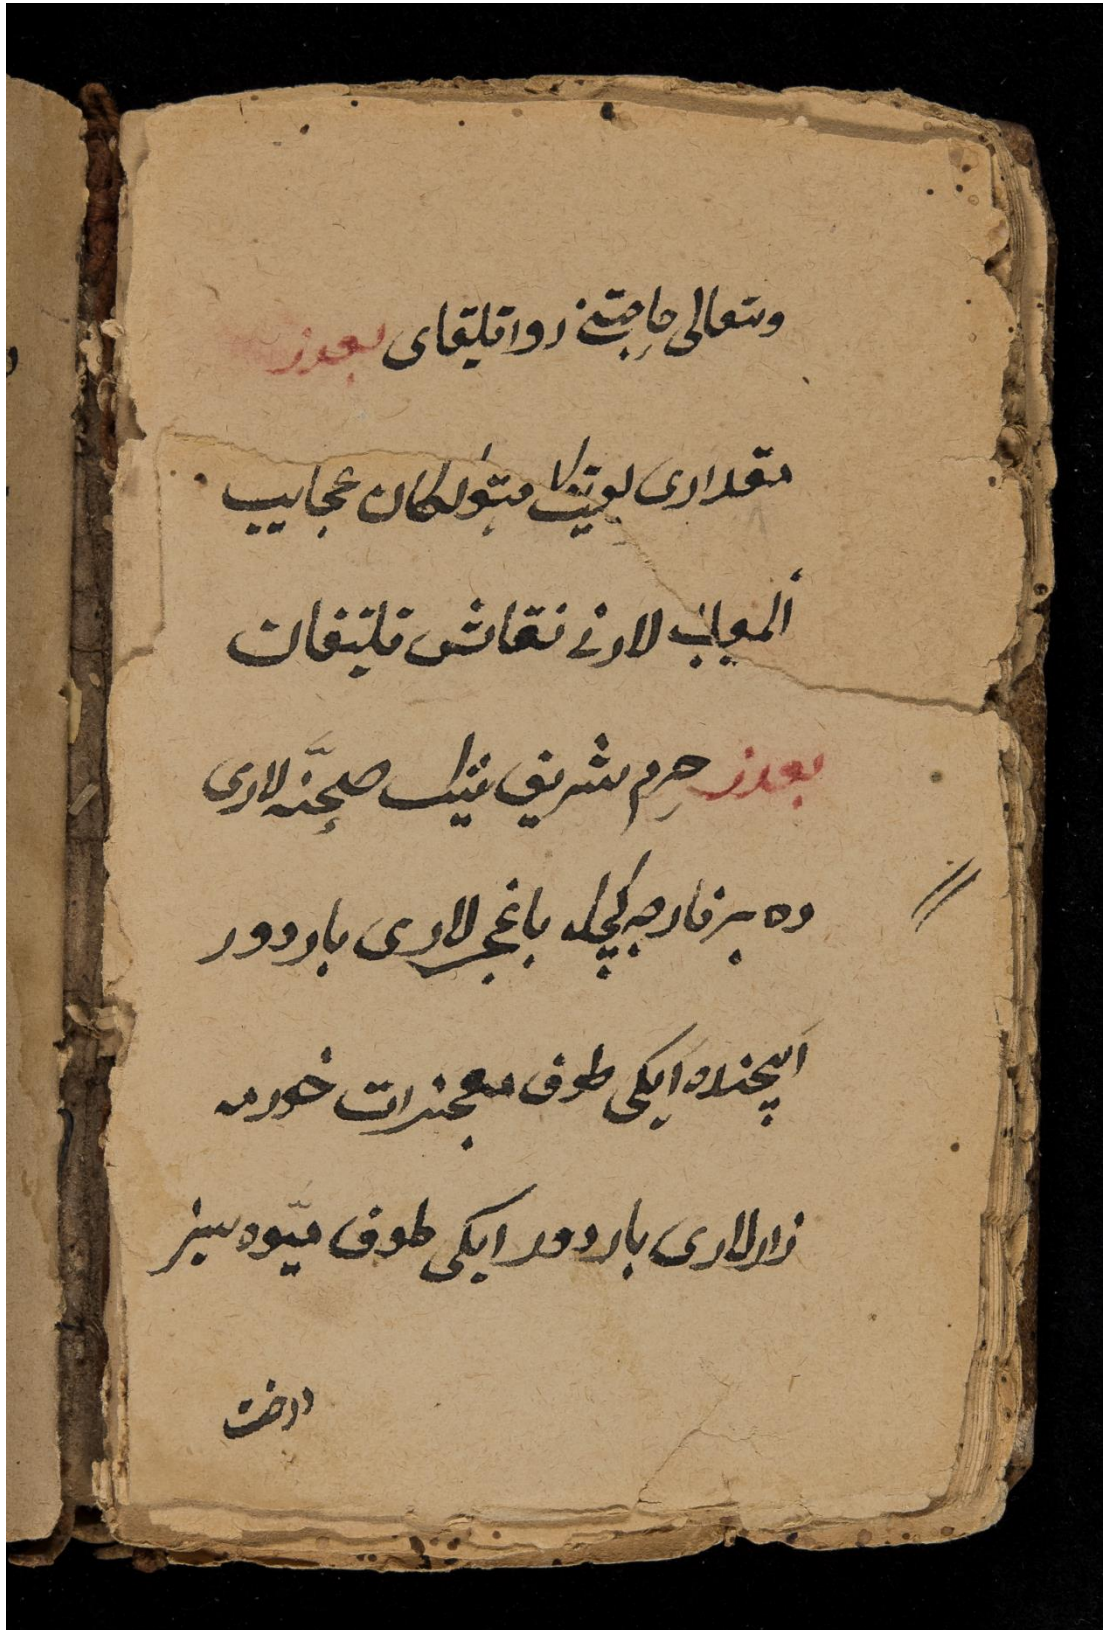 وتعالی حاجتنی روا قلیقای بعدز
مقداری لوننك متولكان عجایب
المعایب لارنی نقاش قلیغان
بعدز حرم شریف ننك صحنه لاری
وه بر نارجه كچیك باغچه لاری باردور
ایچنده ایكی طرف معجزات خورمه
زارلاری باردور ایكی طرف میوه سیز
درخت